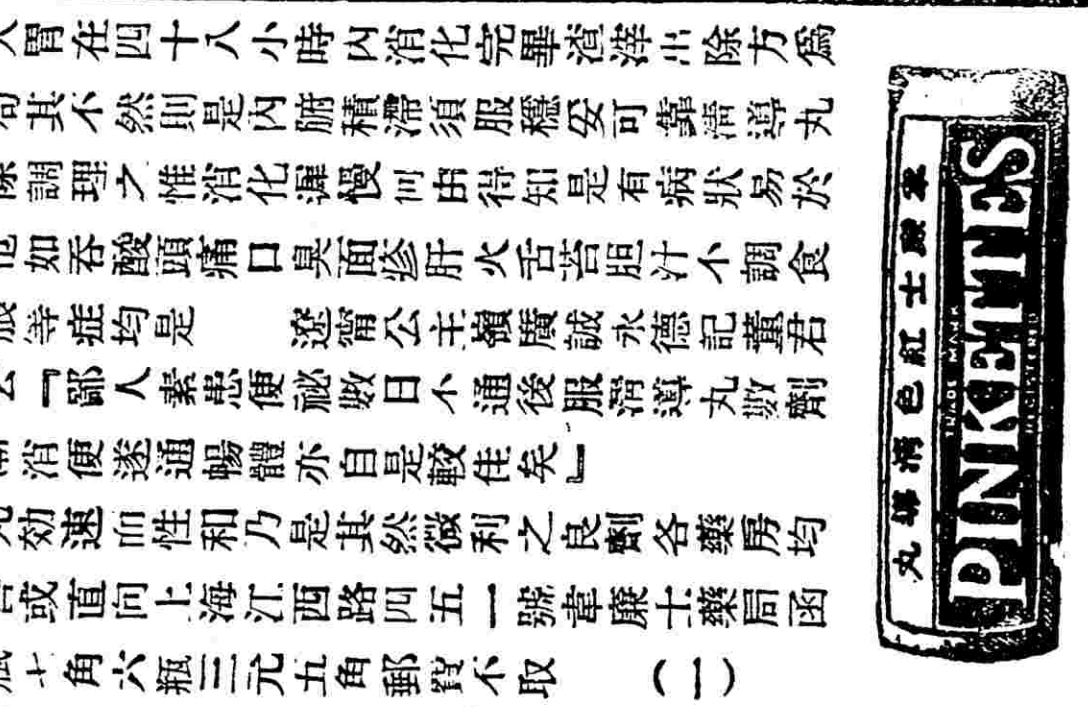 胃在四十八小時內消化完畢渣滓出除方爲
其不然則是內腑積滯須服穩妥可靠清導丸
調理之惟消化遲慢何由得知是有病狀易於
如吞酸頭痛口臭面疹肝火舌苔胆汁不調食
脹等症均是 遼甯公主嶺廣誠永德記董君
『鄙人素患便祕數日不通後服清導丸數劑
消便遂通暢體亦自是較佳矣』
効速而性和乃是其然微利之良劑各藥房均
或直向上海江西路四五一號韋廉士藥局函
瓶七角六瓶三元五角郵費不取 (一)
丸導清色紅士廉韋
TRADE MARK
PINKETTES
REGISTERED